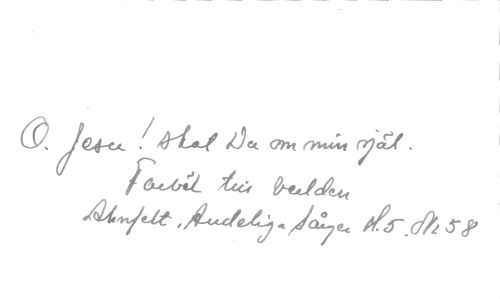 O. Jesu! skal Du om min själ.
verlden
Ahnfelt, Andelig a Sånger H. 5. Nr 58